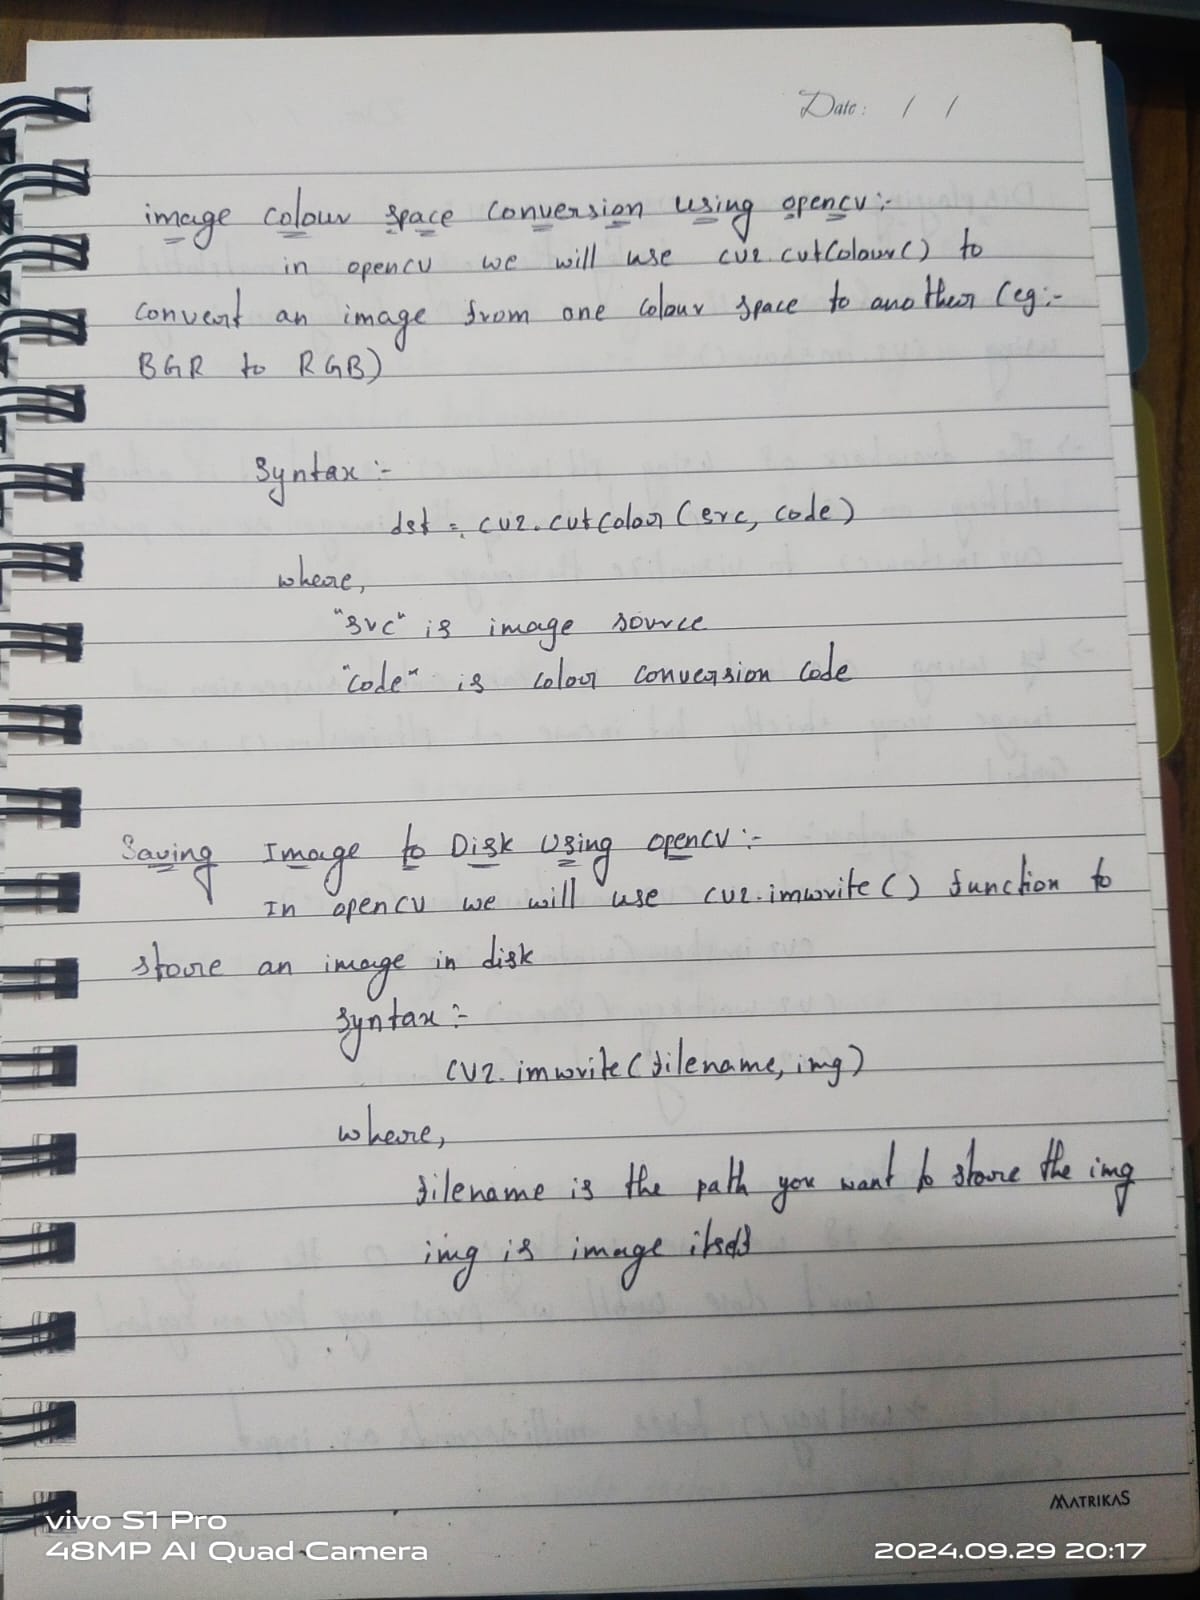 Date: / /
image colour space conversion using opencv:-
in opencv we will use cv2.cvtColour() to
convert an image from one colour space to another (eg:-
BGR to RGB)
Syntax :-
dst = cv2.cvtColour(src, code)
where,
"src" is image source
"code" is colour conversion code
Saving Image to Disk Using opencv:-
In opencv we will use cv2.imwrite() function to
store an image in disk
Syntax :-
cv2.imwrite(filename, img)
where,
filename is the path you want to store the img
img is image itself
MATRIKAS
vivo S1 Pro
48MP AI Quad Camera
2024.09.29 20:17